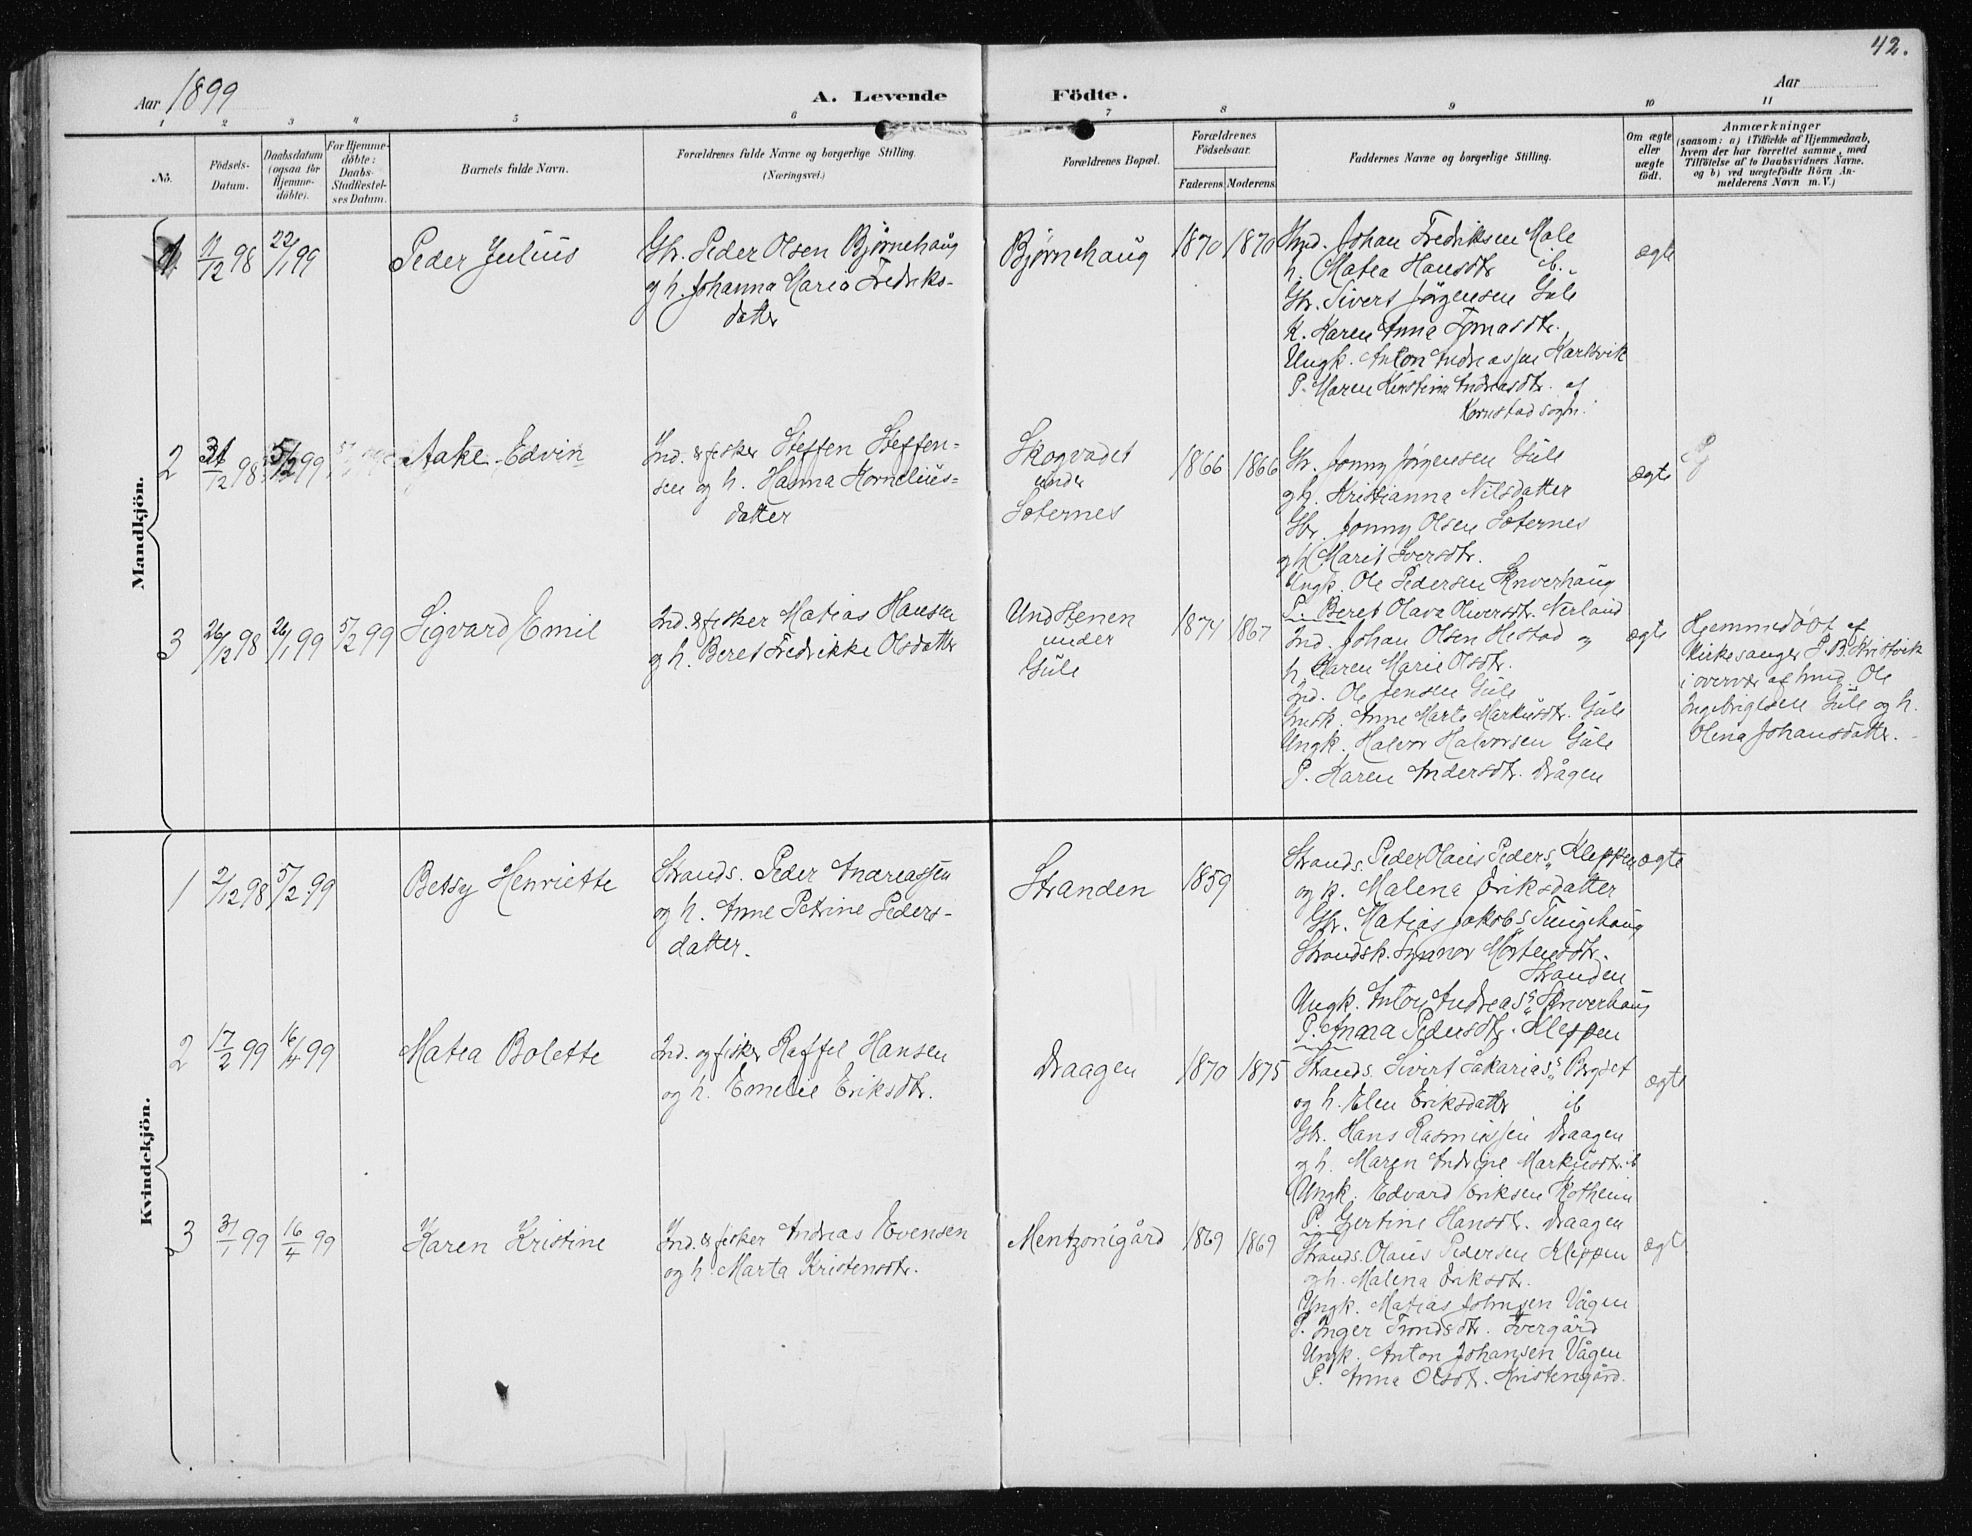 42.
Aar 1899
A. Levende Födte.
Aar
1 2 3 4 5 6 7 8 9 10 11
No.
Födsels-
Datum.
Daabsdatum
(ogsaa for
Hjemme-
döbte).
For Hjemme-
döbte:
Daabs-
Stadfæstel-
ses Datum.
Barnets fulde Navn.
Forældrenes fulde Navne og borgerlige Stilling.
(Næringsvei.)
Forældrenes Bopæl.
Forældrenes
Födselsaar.
Faderens. Moderens.
Faddernes Navne og borgerlige Stilling.
Om ægte
eller
uægte
födt.
Anmærkninger
(saasom: a) i Tilfælde af Hjemmedaab,
hvem der har forrettet samme, med
Tilföielse af to Daabsvidners Navne.
og b) ved uægtefödte Börn An-
melderens Navn m. V.)
Mandkjön.
1. 11/12 98 22/1 99
Peder Julius
Gbr. Peder Olsen Bjørnehaug
og h. Johanna Maria Fredriks-
datter
Bjørnehaug
1870 1870
Ind. Johan Fredriksen Male
h. Matea Hansdtr ib.
Gbr. Sivert Jørgensen Gule
K. Karen Anna Tomasdtr.
Ungk. Anton Andreassen Karlsvik
P. Maren Kirstina Andreasdtr. af
Kornstad sogn.
ægte
2 31/12 98 5/2 99
Aake Edvin
Ind. & fisker Steffen Steffen-
sen og h. Hanna Kornelius-
datter
Skogvadet
under
Sæternes
1866 1866
Gbr. Jonny Jørgensen Gule
og h. Kristianna Nilsdatter
Gbr. Jonny Olsen Sæternes
og h. Marit Iversdtr.
Ungk. Ole Pedersen Knverhaug
P. Beret Olava Oliversdtr. Nerland
ægte
3 26/12 98 26/1 99 5/2 99
Sigvard Emil
Ind. & fisker Matias Hansen
og h. Beret Fredrikke Olsdatter
Und Stenen
under
Gule
1874 1867
Ind. Johan Olsen Hestad og
h. Karen Marie Olsdtr.
Ind. Ole Jensen Gule
Indk. Anne Marta Markusdtr. Gule
Ungk. Halvor Halvorsen Gule
P. Karen Andersdtr. Drågen
ægte
Hjemmedøbt af
Kirkesanger P. B. Kristvik
i overvær af Ind. Ole
Ingebrigtsen Gule og h.
Olena Johansdatter.
Kvindekjön.
1 2/12 98 5/2 99
Betsy Henriette
Strands. Peder Andreassen
og h. Anne Petrine Peders-
datter.
Stranden
1859
Strands. Peder Olaus Peders. Kleppen
og h. Malena Eriksdatter
Gbr. Matias Jakobs. Tungehaug
Strandsk. Synnor Mortensdtr.
Stranden
Ungk. Anton Andreas. Knverhaug
P. Anna Pedersdtr. Kleppen
ægte
2 17/2 99 16/4 99
Matea Bolette
Ind. og fisker Raffel Hansen
og h. Emelie Eriksdtr.
Draagen
1870 1875
Strands. Sivert Sakarias. Bergset
og h. Elen Eriksdatter ib
Gbr. Hans Rasmussen Draagen
og h. Maren Andrine Markusdtr. ib
Ungk. Edvard Eriksen Kotheim
P. Gjertine Hansdtr. Draagen
ægte
3 31/1 99 16/4 99
Karen Kristine
Ind. & fisker Andreas Evensen
og h. Marta Kristensdtr.
Mentzonigård
1869 1869
Strands. Olaus Pedersen Kleppen
og h. Malena Eriksdtr.
Ungk. Matias Johnsen Vågen
P. Inger Trondsdtr. Ivergård
Ungk. Anton Johansen Vågen
P. Anna Olsdtr. Kristengård.
ægte